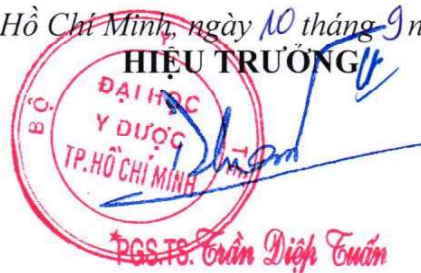 Hồ Chí Minh, ngày 10 tháng 9 n
HIỆU TRƯỞNG
BỘ Y T
ĐẠI HỌC
Y DƯỢC
TP.HỒ CHÍ MINH
PGS.TS. Trần Diệp Tuấn